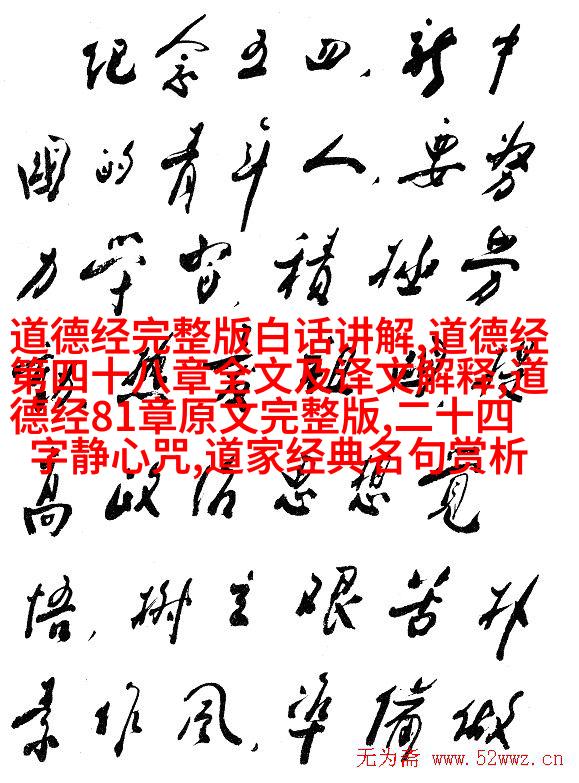 纪念五四，新中
國的青年人，要努
力学習，積極劳
道德经完整版白话讲解,道德经
第四十八章全文及译文解释,道
德经81章原文完整版,二十四
字静心咒,道家经典名句赏析
高政治思想覺
悟，樹立艰苦朴
素作风，準備做
无为斋 www.52wwz.cn